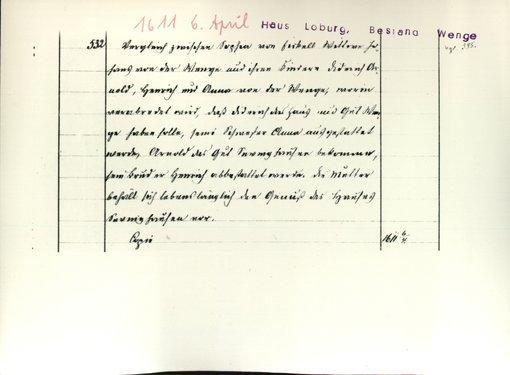 1611 6. April Haus Loburg, Bestand Wenge
532 Vergleich zwischen Sophia von Wittwe Jo-
hans von der Wenge und ihren Kindern Diderich Ar-
nold, Henrich und Anna von der Wenge, worin
verabredet wird, daß Diderich das Haus und Gut Wen-
ge haben solle, seine Schwester Anna ausgestattet
werde, Arnold das Gut bekommen,
sein Bruder Henrich abbestattet werde. Die Mutter
behält sich lebenslänglich den Genuß des Hauses
vor.
Copie 1611 6/4
vgl. 395.